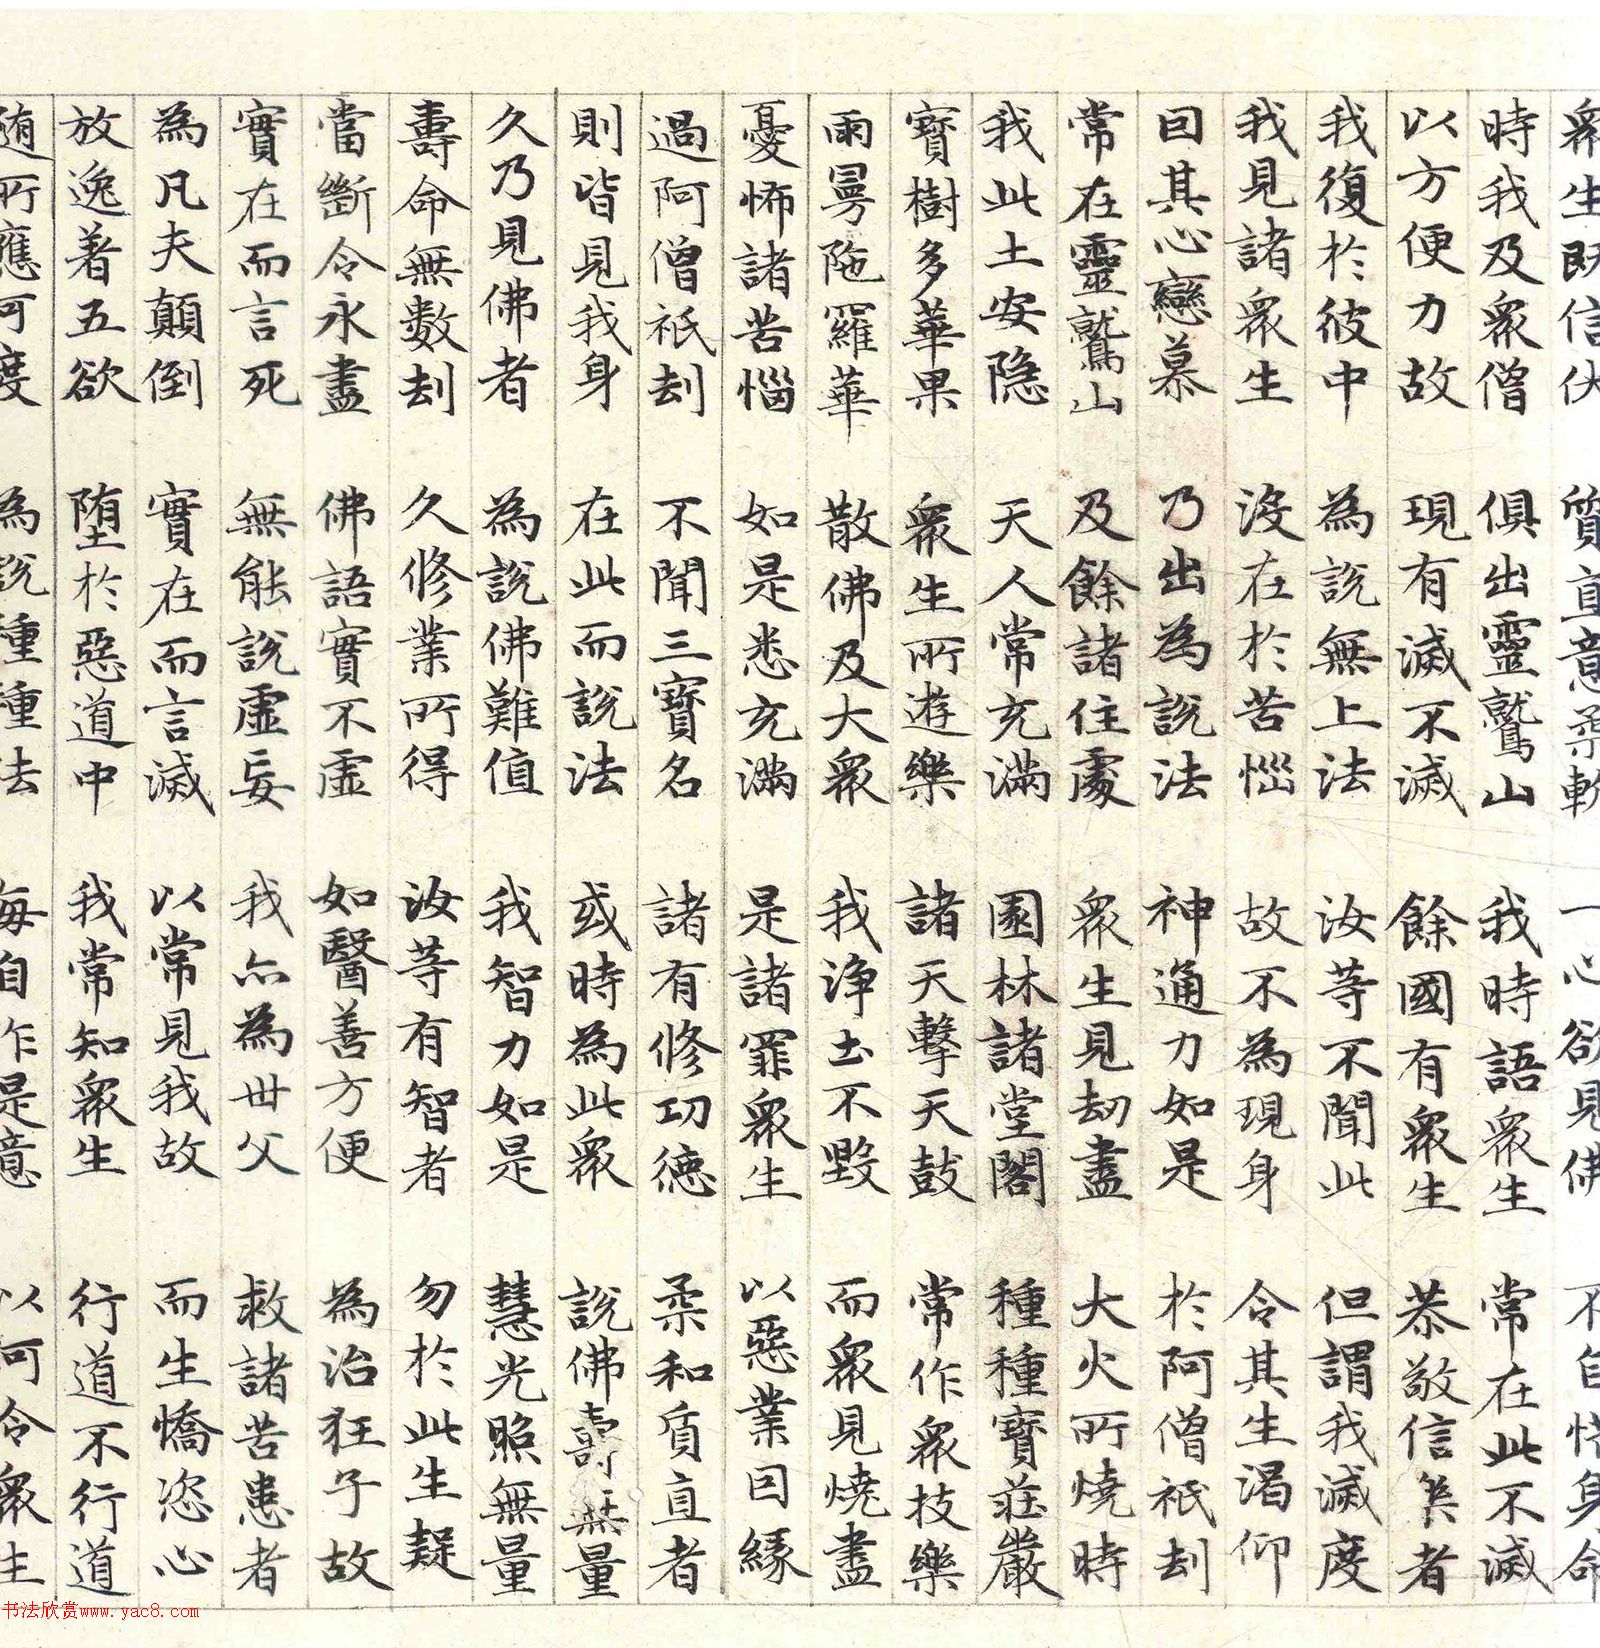 衆生既信伏 質直意柔軟 一心欲見佛 不自惜身命
時我及衆僧 俱出靈鷲山 我時語衆生 常在此不滅
以方便力故 現有滅不滅 餘國有衆生 恭敬信樂者
我復於彼中 為說無上法 汝等不聞此 但謂我滅度
我見諸衆生 没在於苦惱 故不為現身 令其生渴仰
因其心戀慕 乃出為說法 神通力如是 於阿僧祇劫
常在靈鷲山 及餘諸住處 衆生見劫盡 大火所燒時
我此土安隱 天人常充滿 園林諸堂閣 種種寶莊嚴
寶樹多華果 衆生所遊樂 諸天擊天鼓 常作衆技樂
雨曼陁羅華 散佛及大衆 我淨土不毀 而衆見燒盡
憂怖諸苦惱 如是悉充滿 是諸罪衆生 以惡業因緣
過阿僧祇劫 不聞三寶名 諸有修功德 柔和質直者
則皆見我身 在此而說法 或時為此衆 說佛壽無量
久乃見佛者 為說佛難值 我智力如是 慧光照無量
壽命無數劫 久修業所得 汝等有智者 勿於此生疑
當斷令永盡 佛語實不虛 如醫善方便 為治狂子故
實在而言死 無能說虛妄 我亦為世父 救諸苦患者
為凡夫顛倒 實在而言滅 以常見我故 而生憍恣心
放逸著五欲 墮於惡道中 我常知衆生 行道不行道
隨所應可度 為說種種法 每自作是意 以何令衆生
书法欣赏www.yac8.com